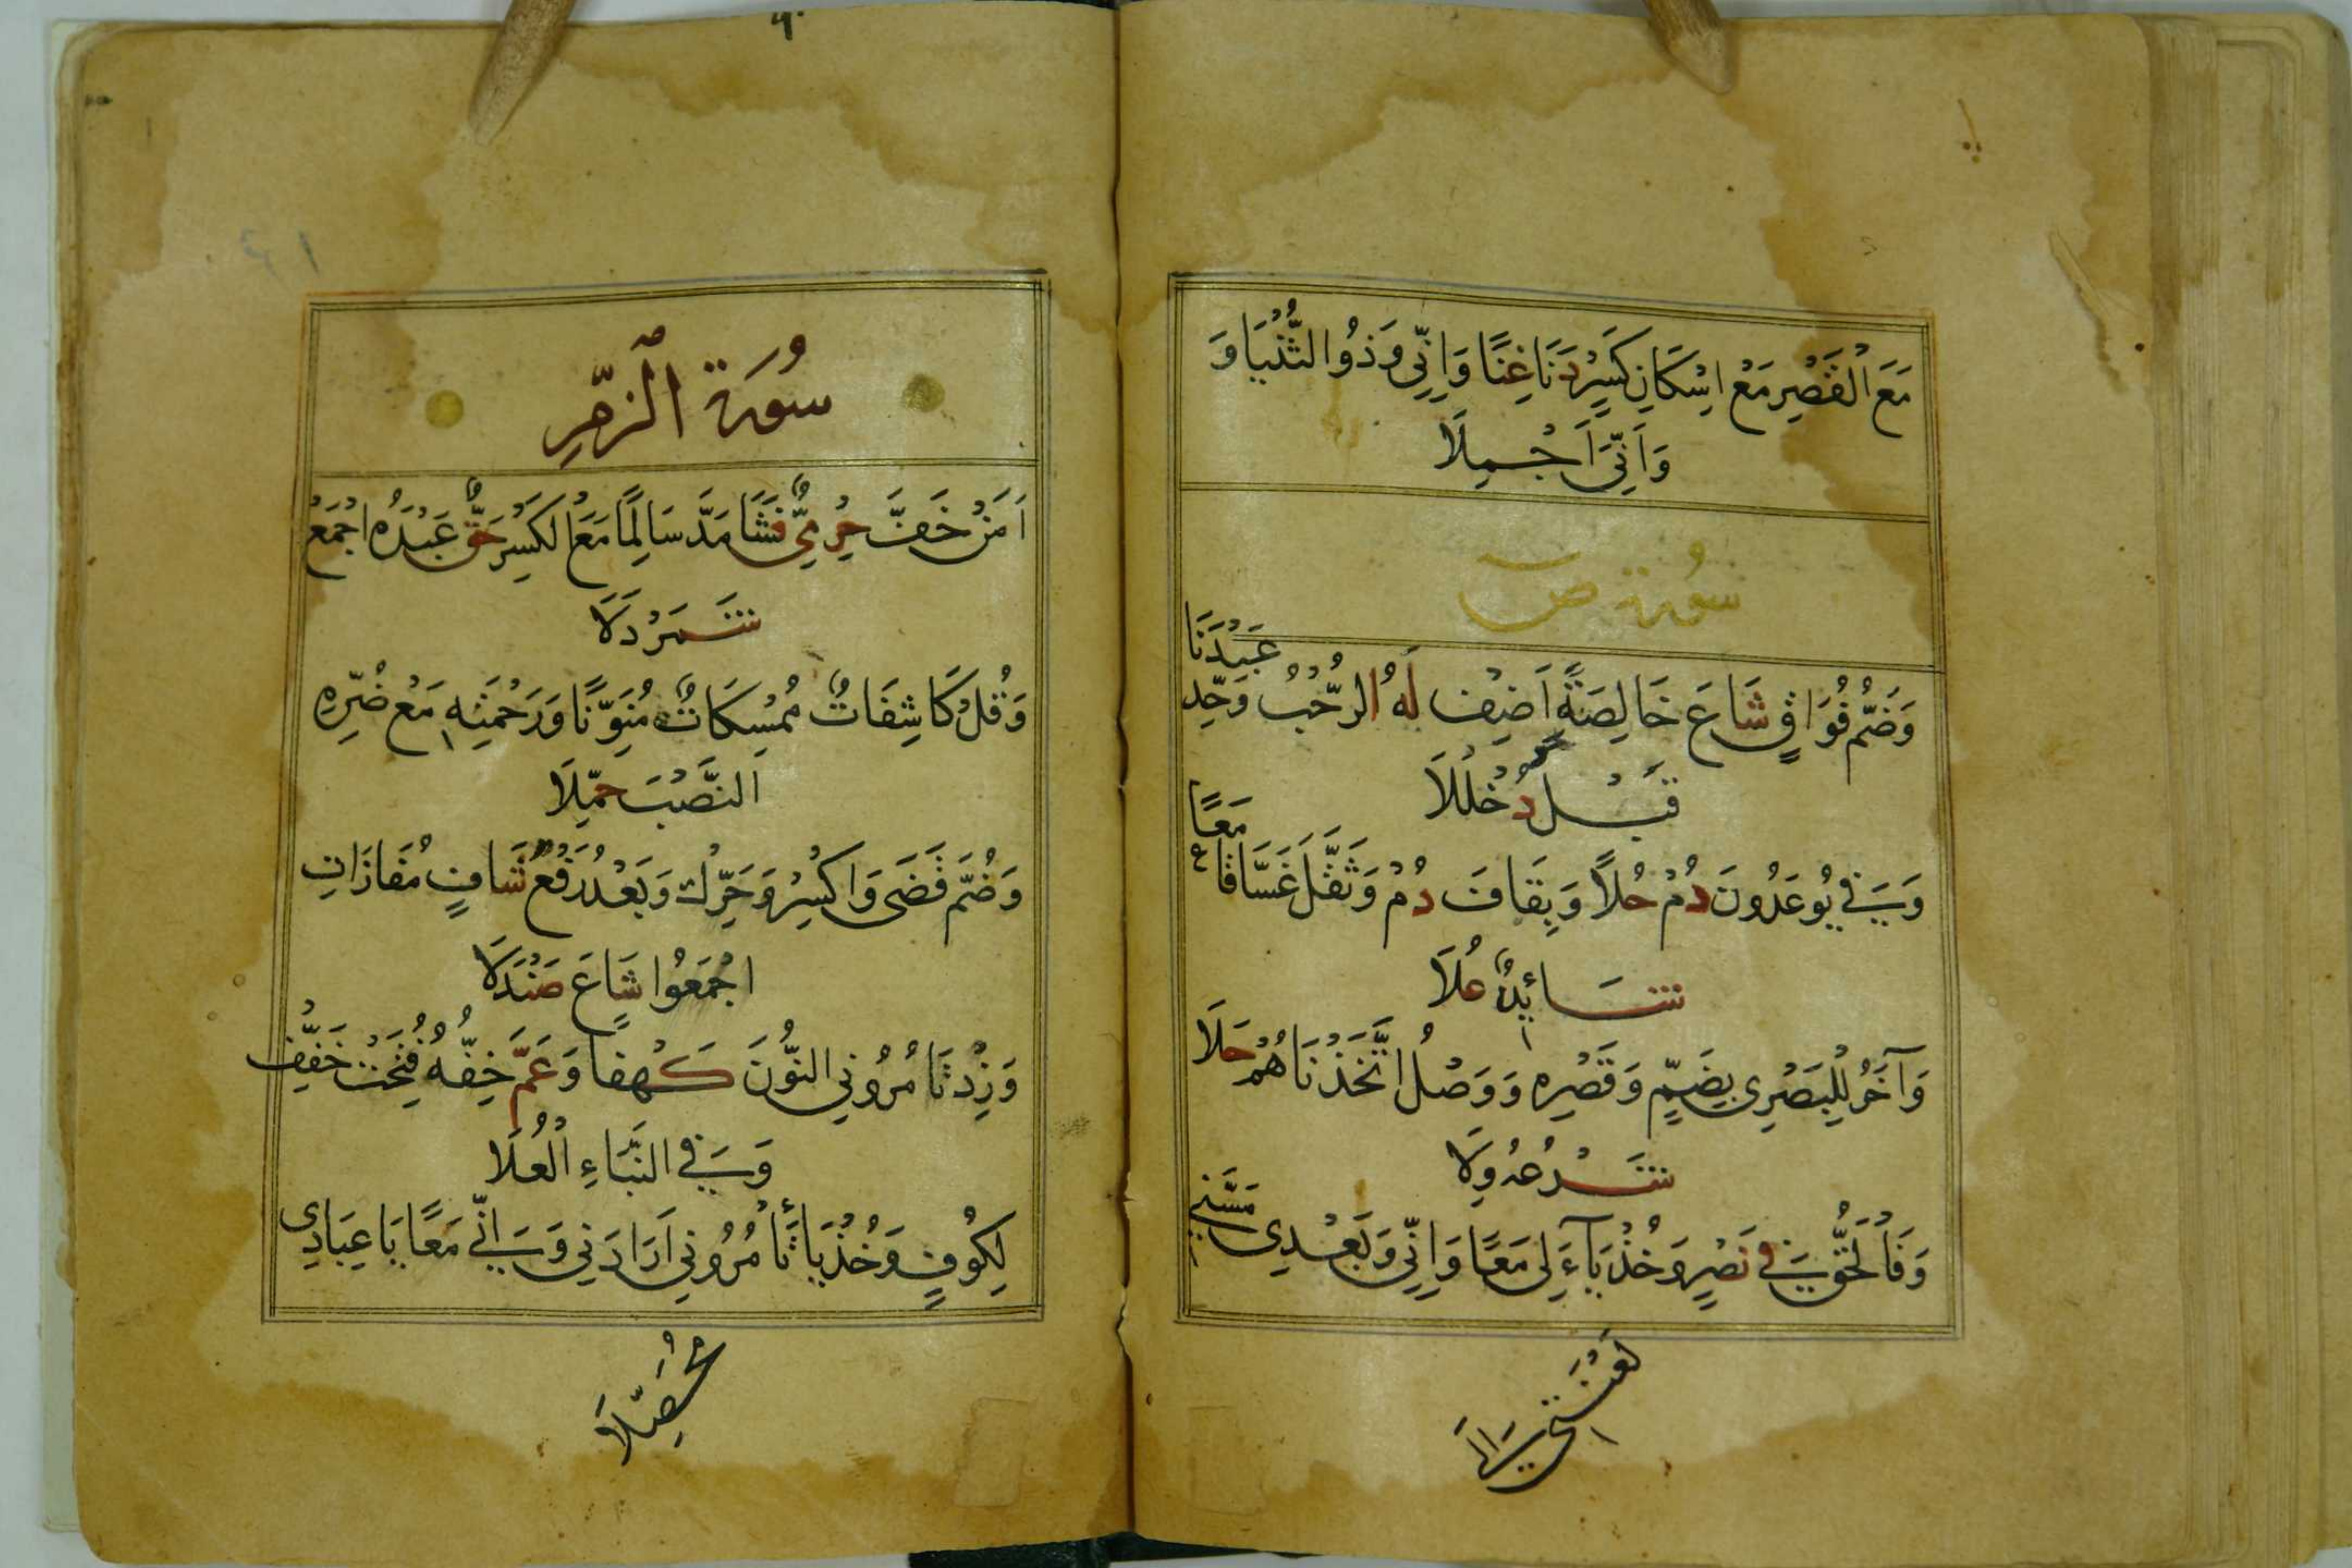 مَعَ الْقَصْرِ مَعْ اِسْكَانِ كَسْرٍ دَنَا غِنًا وَاِنِّي وَذُو الثُّنْيَا وَ
وَاَنِّيَ اَجْمِلَا
سُورَة ص
وَضَمُّ فُوَاقٍ شَاعَ خَالِصَةً اَضِفْ لَهُ الرُّحْبُ وَحِّدْ عَبْدَنَا
قَبْلُ دُخْلُلَا
وَفِي يُوعَدُونَ دُمْ حُلًا وَبِقَافَ دُمْ وَثَقَّلَ غَسَّاقًا مَعًا
شَائِدٌ عُلَا
وَآخَرُ لِلْبَصْرِي بِضَمٍّ وَقَصْرِهِ وَوَصْلُ اتَّخَذْنَاهُمْ حَلَا
شَرْعُهُ وِلَا
وَفَالْحَقُّ فِي نَصْرٍ وَخُذْ يَآءَ لِي مَعًا وَاِنِّي وَبَعْدِي مَسَّنِي
لَعْنَتِي اِلَى
٩٠
سُورَة الزُّمَرِ
اَمَنْ خَفَّ حِرْمِيٌّ فَشَا مَدَّ سَالِمًا مَعَ الْكَسْرِ حَقٌّ عَبْدَهُ اجْمَعْ
شَمَرْدَلَا
وَقُلْ كَاشِفَاتٌ مُمْسِكَاتٌ مُنَوِّنًا وَرَحْمَتِهِ مَعْ ضُرِّهِ
النَّصْبَ حُمِّلَا
وَضُمَّ قَضَى وَاكْسِرْ وَحَرِّكْ وَبَعْدُ رَفْعُ شَافٍ مَفَازَاتِ
اجْمَعُوا شَاعَ صَنْدَلَا
وَزِدْ تَامُرُونِي النُّونَ كَهْفًا وَعَمَّ خِفُّهُ فُتِحَتْ خَفِّفْ
وَفِي النَّبَاءِ الْعُلَا
لِكُوفٍ وَخُذْ يَا تَأْمُرُونِي اَرَادَنِي وَاِنِّي مَعًا يَا عِبَادِي
مُحَصِّلَا